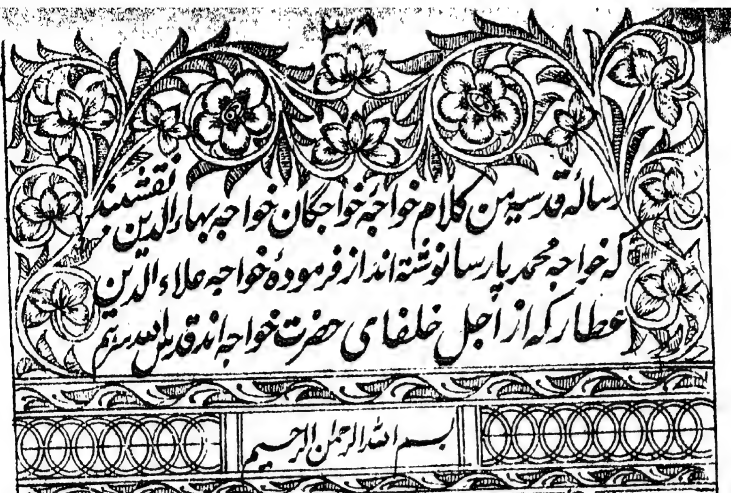 ۳۸
رسالهٔ قدسیه من کلام خواجهٔ خواجگان خواجه بهاءالدین نقشبند
که خواجه محمد پارسا نوشته‌اند از فرمودهٔ خواجه علاءالدین
عطار که از اجل خلفای حضرت خواجه اند قدس الله سرهم
بسم الله الرحمن الرحیم